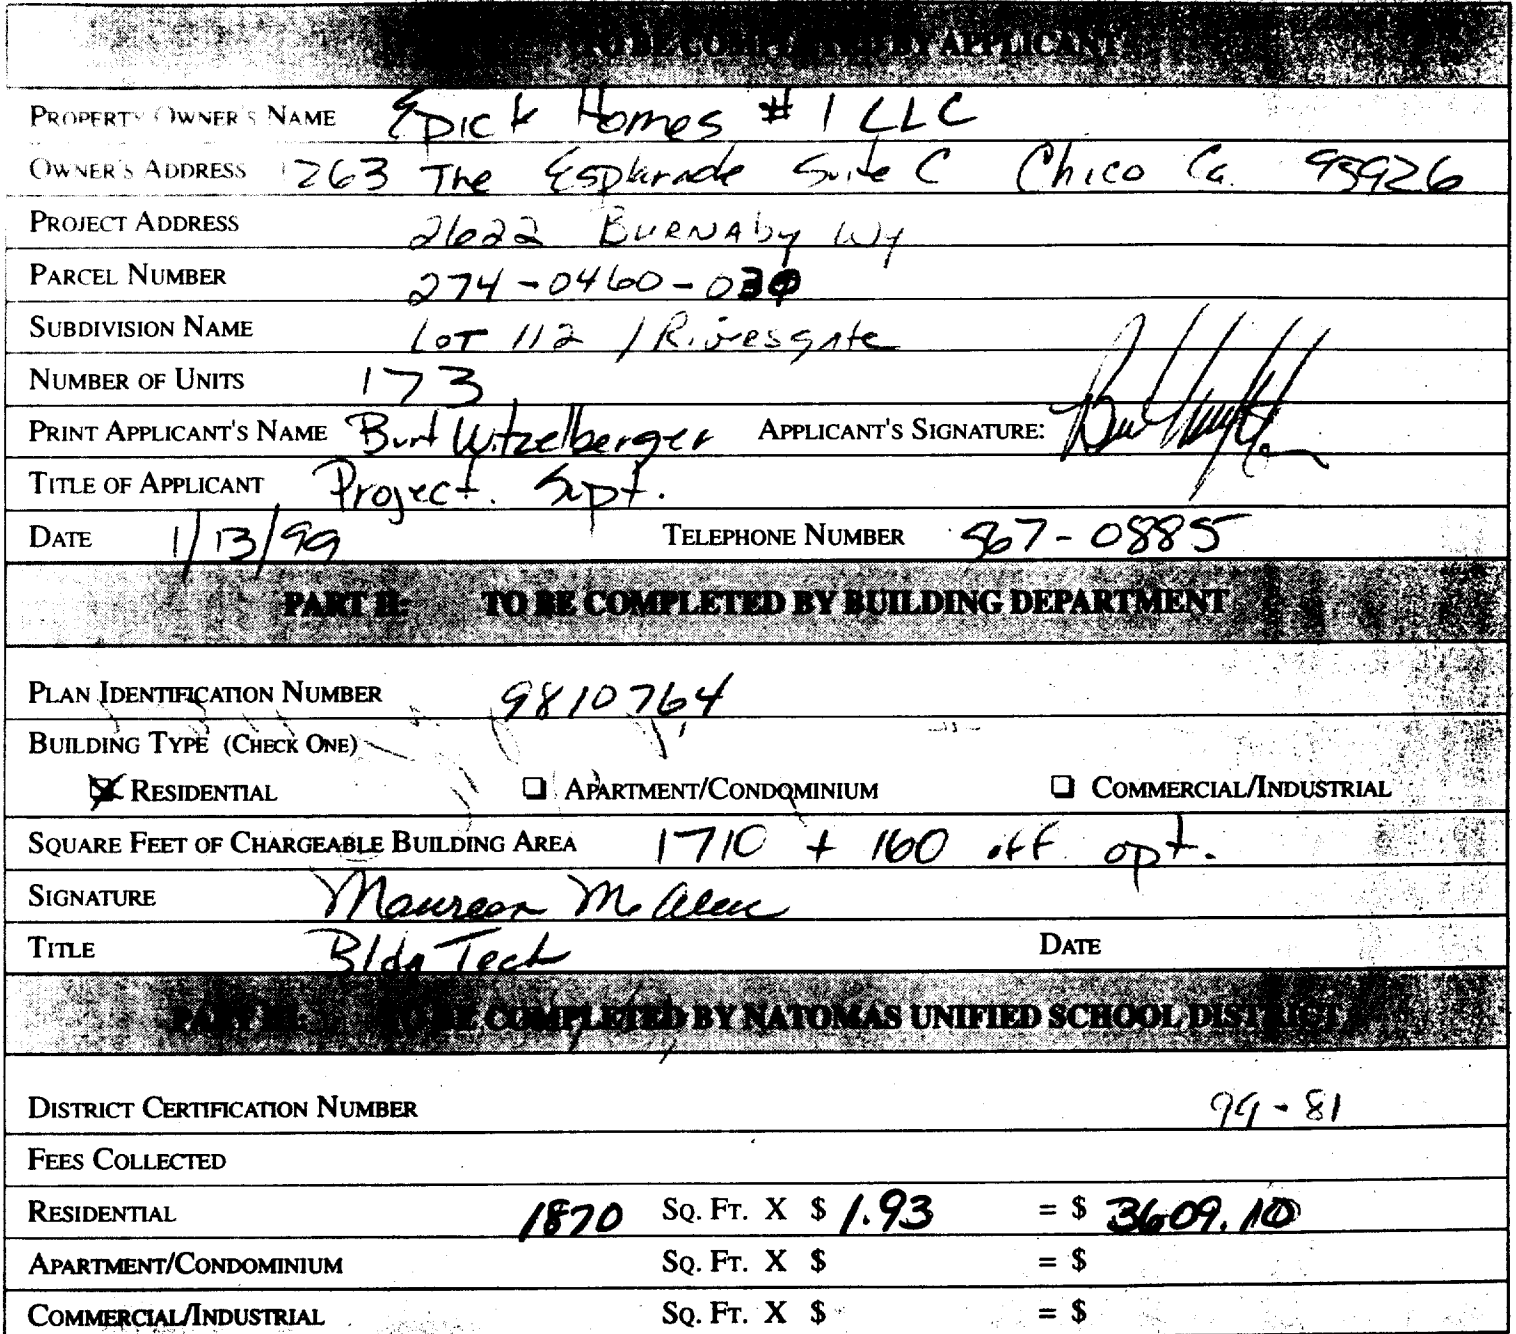 TO BE COMPLETED BY APPLICANT
PROPERTY OWNER'S NAME Epick Homes #1 LLC
OWNER'S ADDRESS 1263 The Esplanade Suite C Chico Ca. 95926
PROJECT ADDRESS 2622 BURNAby Wy
PARCEL NUMBER 274-0460-030
SUBDIVISION NAME LOT 112 / Rivergate
NUMBER OF UNITS 173
PRINT APPLICANT'S NAME Burt Witzelberger APPLICANT'S SIGNATURE:
TITLE OF APPLICANT Project. Supt.
DATE 1/13/99 TELEPHONE NUMBER 567-0885
PART II: TO BE COMPLETED BY BUILDING DEPARTMENT
PLAN IDENTIFICATION NUMBER 9810764
BUILDING TYPE (CHECK ONE)
RESIDENTIAL APARTMENT/CONDOMINIUM COMMERCIAL/INDUSTRIAL
SQUARE FEET OF CHARGEABLE BUILDING AREA 1710 + 160 off opt.
SIGNATURE Maureen
TITLE Bldg Tech DATE
PART III. TO BE COMPLETED BY NATOMAS UNIFIED SCHOOL DISTRICT
DISTRICT CERTIFICATION NUMBER 99-81
FEES COLLECTED
RESIDENTIAL 1870 SQ. FT. X $ 1.93 = $ 3609.10
APARTMENT/CONDOMINIUM SQ. FT. X $ = $
COMMERCIAL/INDUSTRIAL SQ. FT. X $ = $